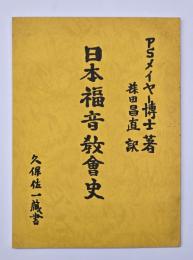 PSメイヤー博士著
藤田昌直訳
日本福音敎會史
久保佐一蔵書